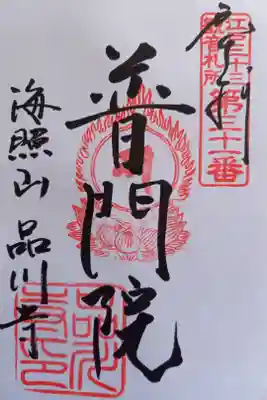 奉拝
江戸三十三
観音札所
第三十一番
普門院
海照山 品川寺